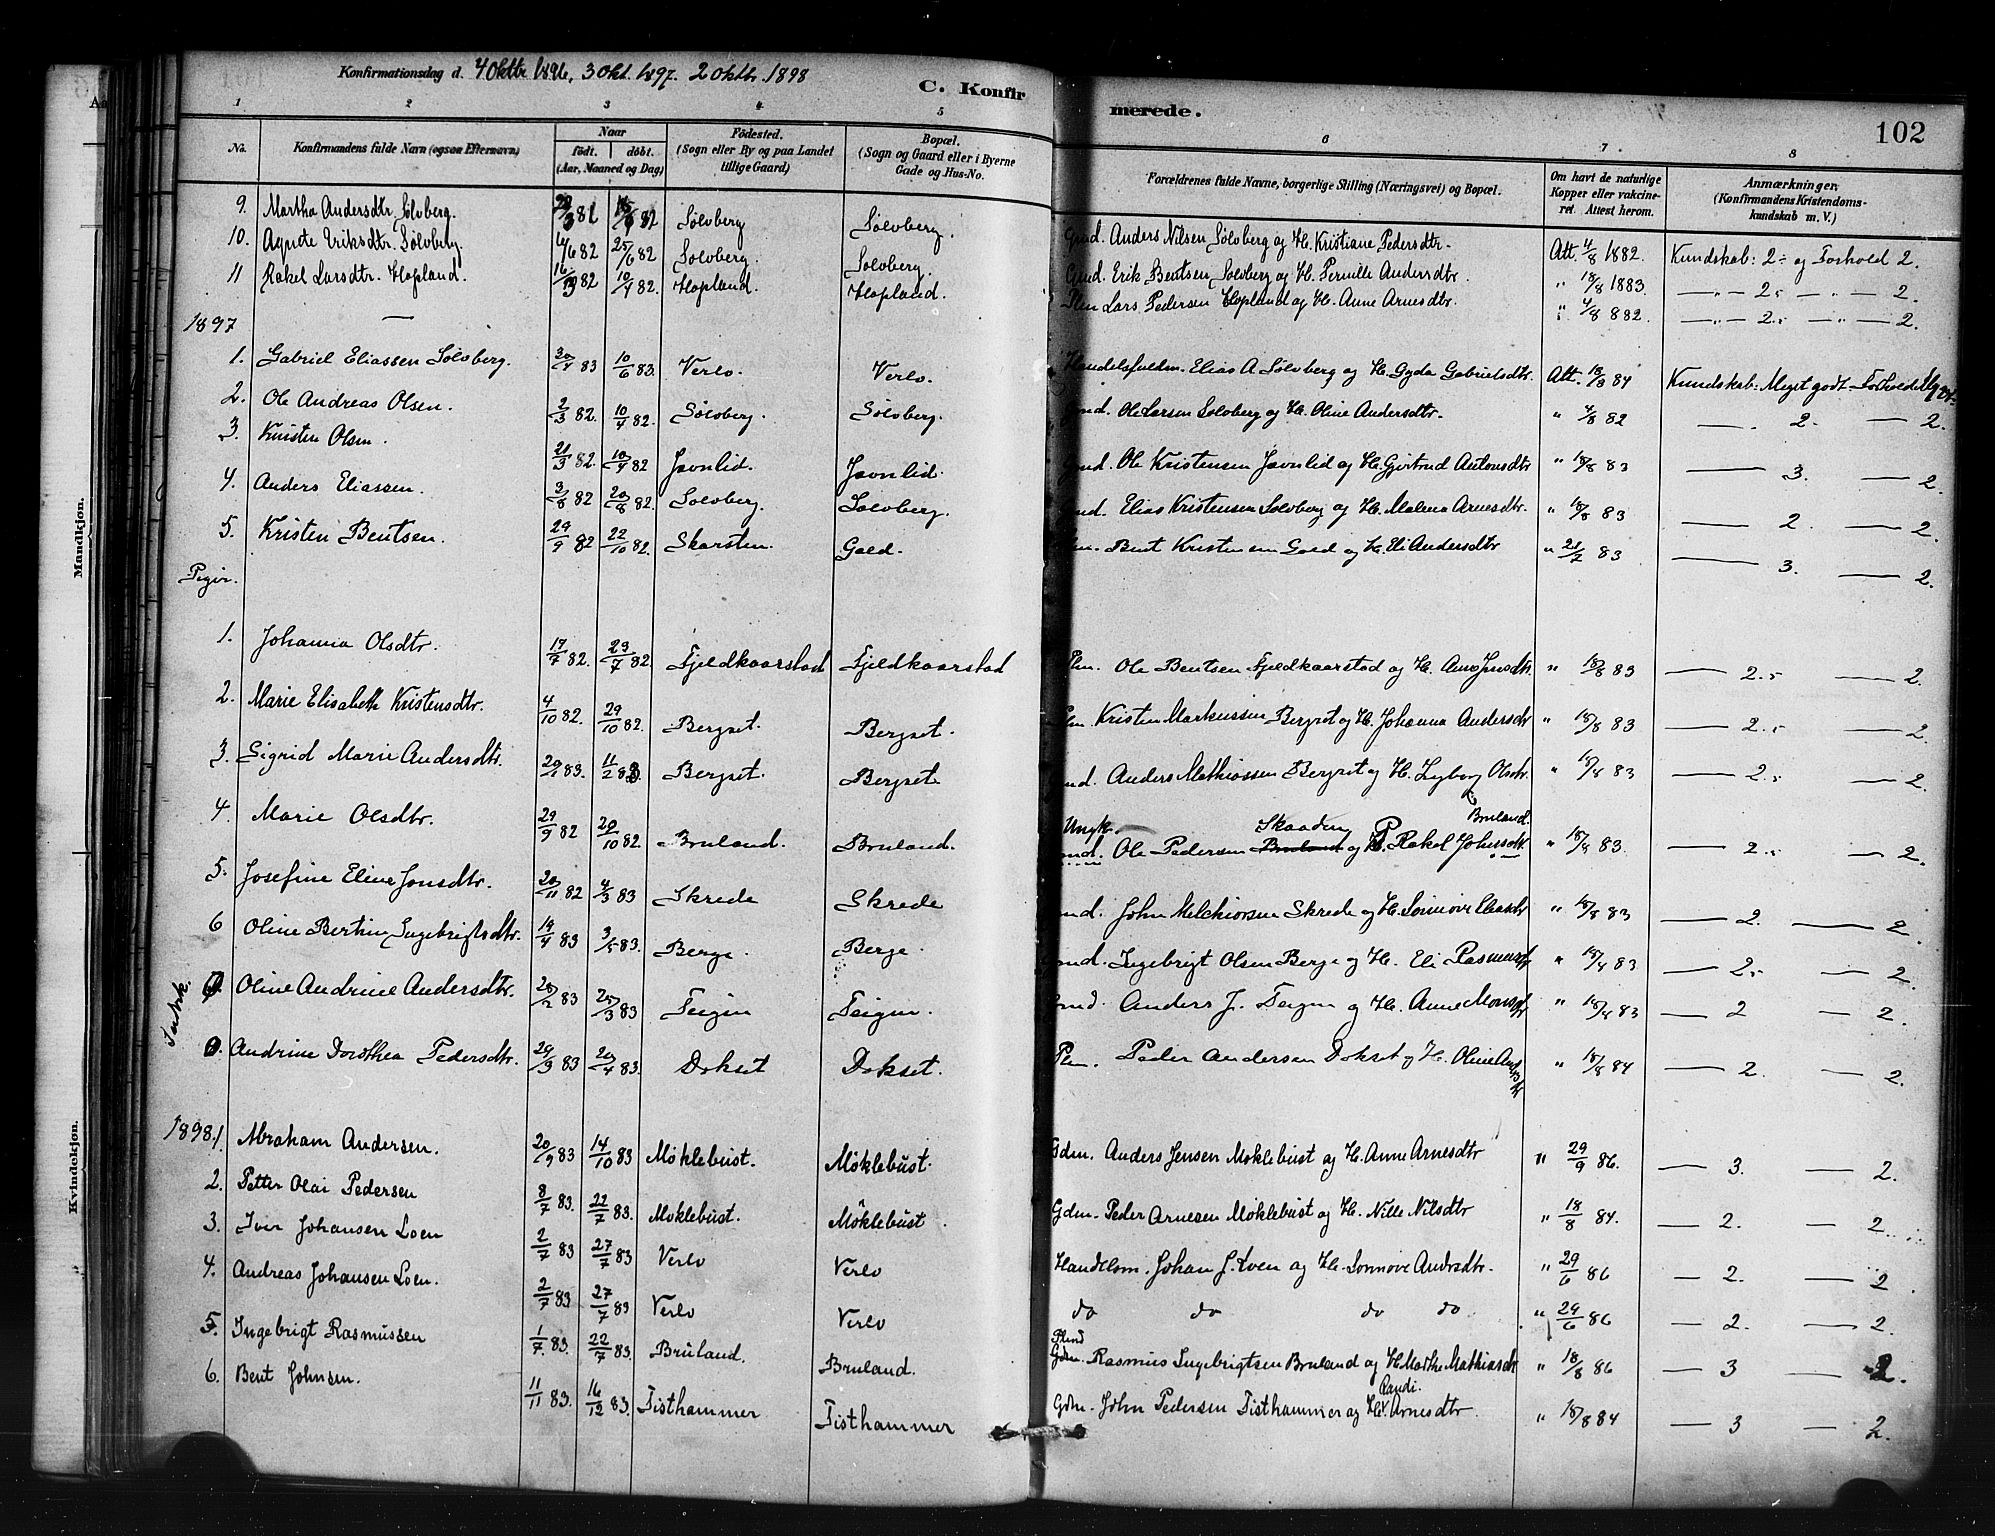 Konfirmationsdag d. 4 Oktbr 1896, 3 Okt. 1897. 2 Oktbr. 1898
C. Konfirmerede. 102
1 2 3 4 5 6 7 8
No. Konfirmandens fulde Navn (ogsaa Efternavn) Naar födt. döbt. (Aar, Maaned og Dag) Födested. (Sogn eller By og paa Landet tillige Gaard) Bopæl. (Sogn og Gaard eller i Byerne Gade og Hus-No. Forældrenes fulde Navne, borgerlige Stilling (Næringsvei) og Bopæl. Om havt de naturlige Kopper eller vakcineret. Attest herom. Anmærkninger. (Konfirmandens Kristendomskundskab m. V.)
9. Martha Andersdtr. Sølvberg. Sølvberg Sølvberg. Anders Nilsen Sølvberg og H. Kristiane Pedersdtr. Att. 4/8 1882. Kundskab: 2 ÷ og Forhold 2.
10. Agnete Eriksdtr. Solvberg. 4/6 82 25/6 82 Solvberg. Solvberg. Gmd. Erik Bentsen Solvberg og H. Pernille Andersdtr. " 18/8 1883. — " — 2 ÷ — " — 2.
11 Rakel Larsdtr. Hopland. 10/4 82. Hopland. Hopland. Plm Lars Pedersen Hopland og H. Anne Arnesdtr. " 4/8 882. — " — 2 ÷ — " — 2.
1897 —
1. Gabriel Eliassen Solvberg. 30/4 83 10/6 83. Verlo. Verlo. Elias A. Sølvberg og H. Gyda Gabrielsdtr. Att. 18/8 84 Kundskab: Meget godt - Forhold
2. Ole Andreas Olsen. 2/3 82. 10/4 82. Sølvberg. Sølvberg. Gmd. Ole Larsen Solvberg og H. Oline Andersdtr. " 4/8 82 — . 2. — 2.
3. Kristen Olsen. 21/3 82. 10/4 82 Javnlid. Javnlid. Gmd. Ole Kristensen Javnlid og H. Gjertrud Antonsdtr " 18/8 83 — 3. — 2.
4. Anders Eliassen. 3/8 82 20/8 82. Solvberg. Solvberg. Gmd. Elias Kristensen Solvberg og H. Malena Arnesdtr. " 18/8 83 — 2. — 2.
5. Kristen Bentsen. 29/9 82 22/10 82. Skarsten. Gald. Plm. Bent Kristensen Gald og H. Eli Andersdtr " 21/7 83 — 3. — 2.
Piger.
1. Johanna Olsdtr. 17/7 82. 23/7 82. Fjeldkaarstad Fjeldkaarstad Plm. Ole Bentsen Fjeldkaarstad og H. Ane Jensdtr. " 18/8 83 — 2 ÷ — 2.
2. Marie Elisabeth Kristensdtr. 4/10 82. 29/10 82. Bergset. Bergset. Plm. Kristen Markussen Bergset og H. Johanna Andersdtr " 18/8 83 — 2 ÷ — 2.
3. Sigrid Marie Andersdtr. 20/1 83. 11/2 83. Bergset. Bergset Gmd. Anders Mathiassen Bergset og H. Olsdtr " 18/8 83 — 2 ÷ — 2.
4. Marie Olsdtr. 29/9 82 20/10 82. Bruland. Bruland. Ungk. Ole Pedersen Skaaden Bruland og P. Rakel Johnsdtr Bruland. " 18/8 83. — 2 ÷ — 2.
5. Josefine Eline Jonsdtr. 20/11 82 4/3 83 Skrede Skrede Gmd. John Melchiorsen Skrede og H. Sonnove Eliasdtr " 18/8 83 — 2. — 2.
6 Oline Bertine Ingebrigtsdtr. 14/4 83 3/5 83. Berge. Berge. Gmd. Ingebrigt Olsen Berge og H. Eli Rasmusdtr " 18/8 83 — 2 ÷ — 2.
Oline Andrine Andersdtr. 20/2 83 25/3 83 Teigen Teigen. Gmd. Anders J. Teigen og H. Anne Monsdtr " 18/8 83 — 2 — 2.
Andrine Dorothea Pedersdtr. 29/3 83 20/4 83. Dokset Dokset. Plm. Peder Andersen Dokset og H. Oline " 18/8 84 — 2. — 2.
1898. 1 Abraham Andersen. 20/9 83 14/10 83 Møklebust. Møklebust. Gdm. Anders Jensen Møklebust og H. Anne Arnesdtr " 29/9 86. — 3. — 2.
2. Petter Olai Pedersen 8/7 83. 22/7 83. Møklebust. Møklebust. Gdm. Peder Arnesen Møklebust og H. Nille Nilsdtr " 18/8 84. — 2. — 2
3. Iver Johansen Loen 2/7 83 27/7 83 Verlo Verlo Handelsm. Johan J. Loen og H. Sonnove Andrsdtr. " 29/6 86 — 2. — 2
4. Andreas Johansen Loen. 2/7 83 27/7 83 Verlo Verlo do do do do " 29/6 86 — 2. — 2.
5. Ingebrigt Rasmussen 1/7 83. 22/7 83. Bruland. Bruland. Gdm. Rasmus Ingebrigtsen Bruland og H. Marthe Mathiasdtr " 18/8 86 — 3 2.
6. Bent Johnsen. 11/11 83. 16/12 83. Tisthammer Tisthammer Gdm. John Pedersen Tisthammer og H. Randi Arnesdtr. " 18/8 84 — 3 — 2.
Mandkjøn.
Kvindekjøn.